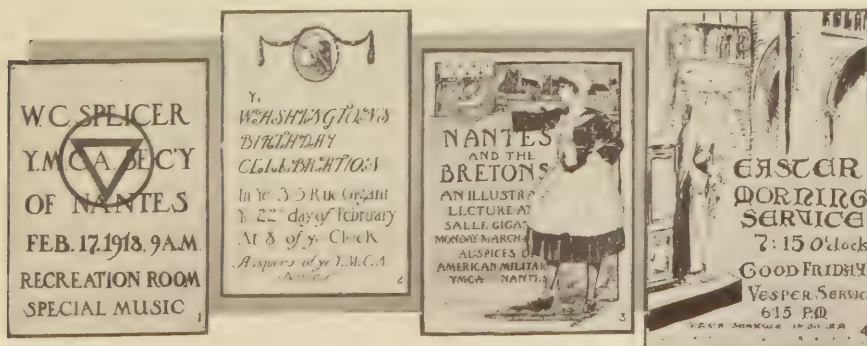 W.C. SPLICER
Y.M.C.A. SEC'Y
OF NANTES
FEB. 17. 1918, 9 A.M.
RECREATION ROOM
SPECIAL MUSIC
1
Ye
WASHINGTON'S
BIRTHDAY
CELEBRATION
In Ye 35 Rue Gigant
Ye 22 day of February
At 8 of ye Clock
Auspices of ye Y.M.C.A
2
NANTES
AND THE
BRETONS
AN ILLUSTRA
LECTURE AT
SALLE GIGA
MONDAY MARCH
AUSPICES O
AMERICAN MILITAR
YMCA NANTES
3
EASTER
MORNING
SERVICE
7:15 O'clock
GOOD FRIDAY
VESPER SERVIC
6:15 P.M
4